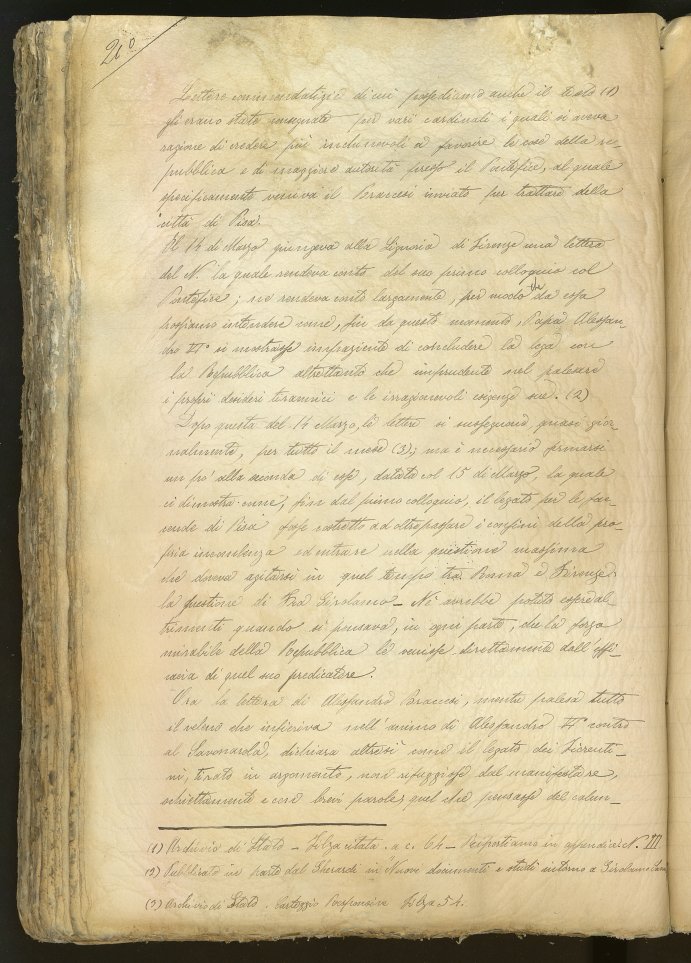 26°
Lettere commendatizie di cui possediamo anche il testo (1)
gli erano state consegnate per vari cardinali i quali si aveva
ragione di credere più inchinevoli a favorire le cose della re-
pubblica e di maggiore autorità presso il Pontefice, al quale
specificamente veniva il Braccesi inviato per trattare della
città di Pisa.
Il 14 di Marzo giungeva alla Signoria di Firenze una lettera
del N. la quale rendeva conto del suo primo colloquio col
Pontefice; ne rendeva conto largamente, per modo che da essa
possiamo intendere come, fin da questo momento, Papa Alessan-
dro VI° si mostrasse impaziente di concludere la lega con
la Repubblica altrettanto che imprudente nel palesare
i propri desideri tirannici e le irragionevoli esigenze sue. (2)
Dopo questa del 14 Marzo, le lettere si susseguono quasi gior-
nalmente, per tutto il mese (3); ma è necessario fermarsi
un po' alla seconda di esse, datata col 15 di Marzo, la quale
ci dimostra come, fin dal primo colloquio, il legato per le fac-
cende di Pisa fosse costretto ad oltrepassare i confini della pro-
pria incombenza ed entrare nella quistione massima
che doveva agitarsi in quel tempo tra Roma e Firenze:
la questione di Fra Girolamo – Nè avrebbe potuto essere al-
trimenti quando si pensava, in ogni parte, che la forza
mirabile della Repubblica le venisse direttamente dall'effi-
cacia di quel suo predicatore.
Ora la lettera di Alessandro Braccesi, mentre palesa tutto
il veleno che inferiva nell'animo di Alessandro VI° contro
al Savonarola, dichiara altresì come il legato dei Fiorenti-
ni, tirato in argomento, non rifuggisse dal manifestare,
schiettamente e con brevi parole, quel che pensasse del calun-
(1) Archivio di Stato – Filza citata. a c. 64 – Riportiamo in appendice N. III.
(2) Pubblicato in parte dal Gherardi in "Nuovi documenti e studi intorno a Girolamo
(3) Archivio di Stato. Carteggio Responsive Filza 54.